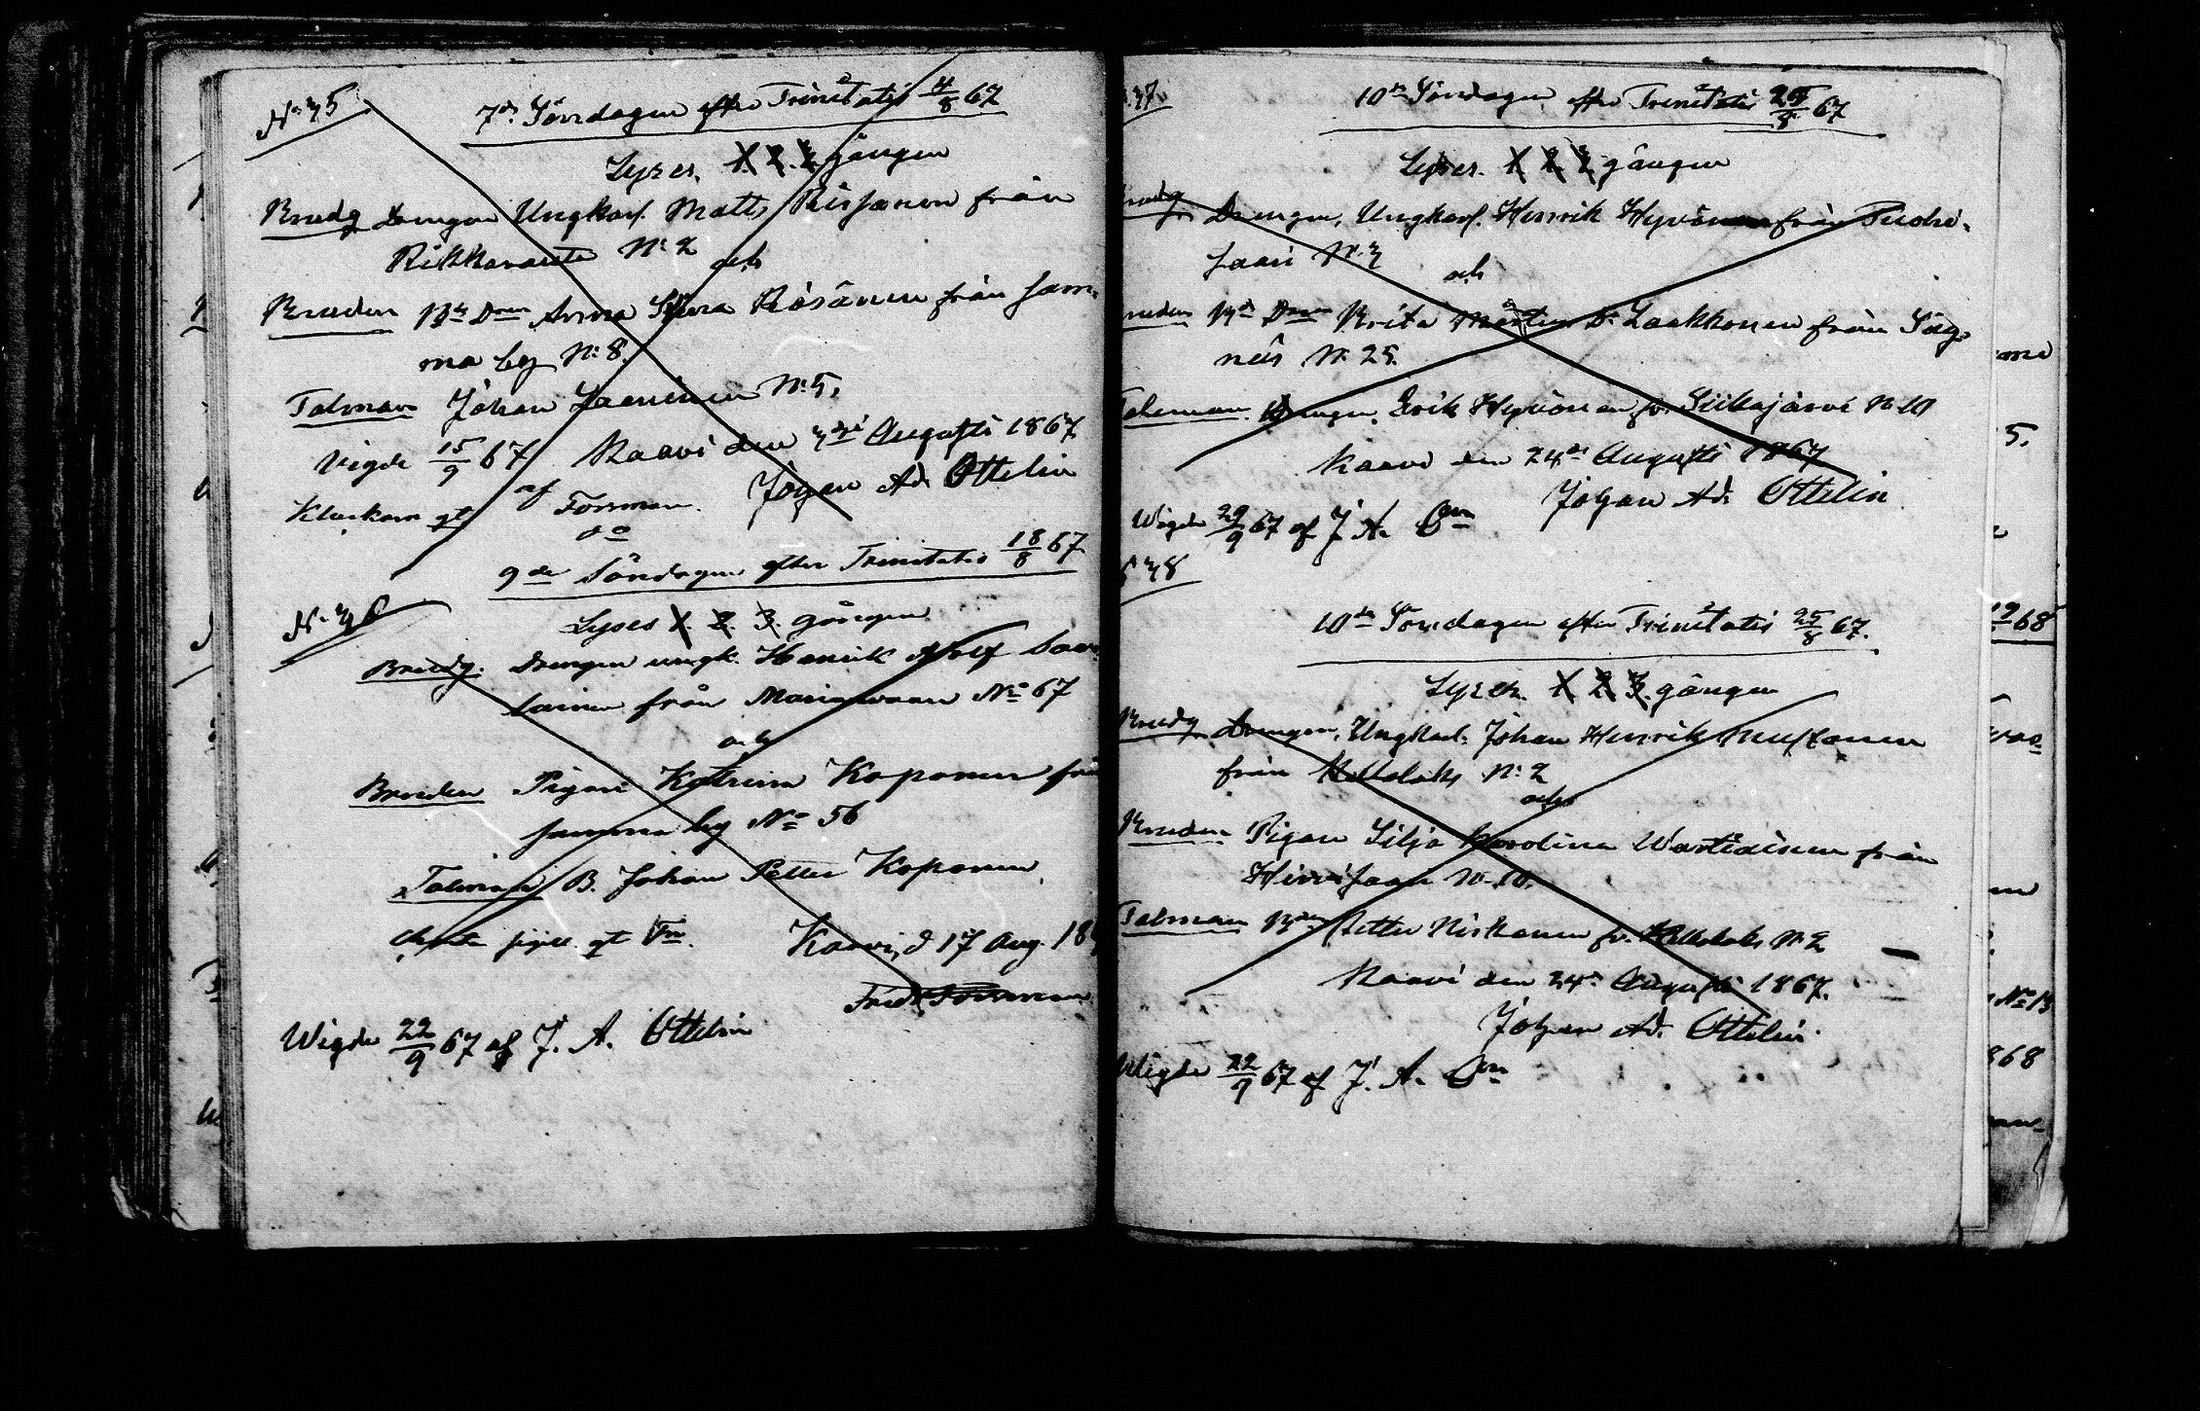 No 35
7de Söndagen efter Trinitatis 4/8 67
Lyses 1. 2. 3 gången
Brudg Drengen Ungkarl. Matts från
Rikkaranta No 2
och
Bruden Bd Don Anna Stina Räsänen från Jam-
ma by No 8.
Talman Johan No 5,
Vigde 15/9 67 Kaavi den 3dje Augusti 1867
af Forsman. Johan Ad. Ottelin
Klockarn gt
do
9de Söndagen efter Trinitatis 18/8 67
No 36
Lyses 1. 2. 3. gången
Brudg. Drengen ungk. Henrik Adolf Savo-
lainen från Mariavaara No 67
och
Bruden Pigan Katrina Koponen från
samma by No 56
Talman B. Johan Petter Koponen
gt Fm. Kaavi, d 17 Aug. 18
Fredr Forsman
Wigde 22/9 67 af J. A. Ottelin
37
10de Söndagen efter Trinitatis 25/8 67
Lyses. 1 2 3 gången
Brudg Drengen, Ungkarl. Henrik Hyvönen från
saari No 3
och
Bruden Bd Don Brita Mårtens Dr Laakkonen från Säg-
näs No 25
Talman Drengen Erik Hyvönen fr. Siikajärvi No 10
Kaavi den 24de Augusti 1867
Johan Ad. Ottelin
Wigde 29/9 67 af J. A. Oln
38
10de Söndagen efter Trinitatis 25/8 67.
Lyses. 1 2 3. gången
Brudg Drengen, Ungkarl. Johan Henrik Mustonen
från No 2
och
Bruden Pigan Silja Karolina Wartiainen från
Hirvisaari No 10.
Talman Bden Petter Niskanen fr. No 2
Kaavi den 24de Augusti 1867.
Johan Ad. Ottelin
Wigde 22/9 67 af J. A. Oln